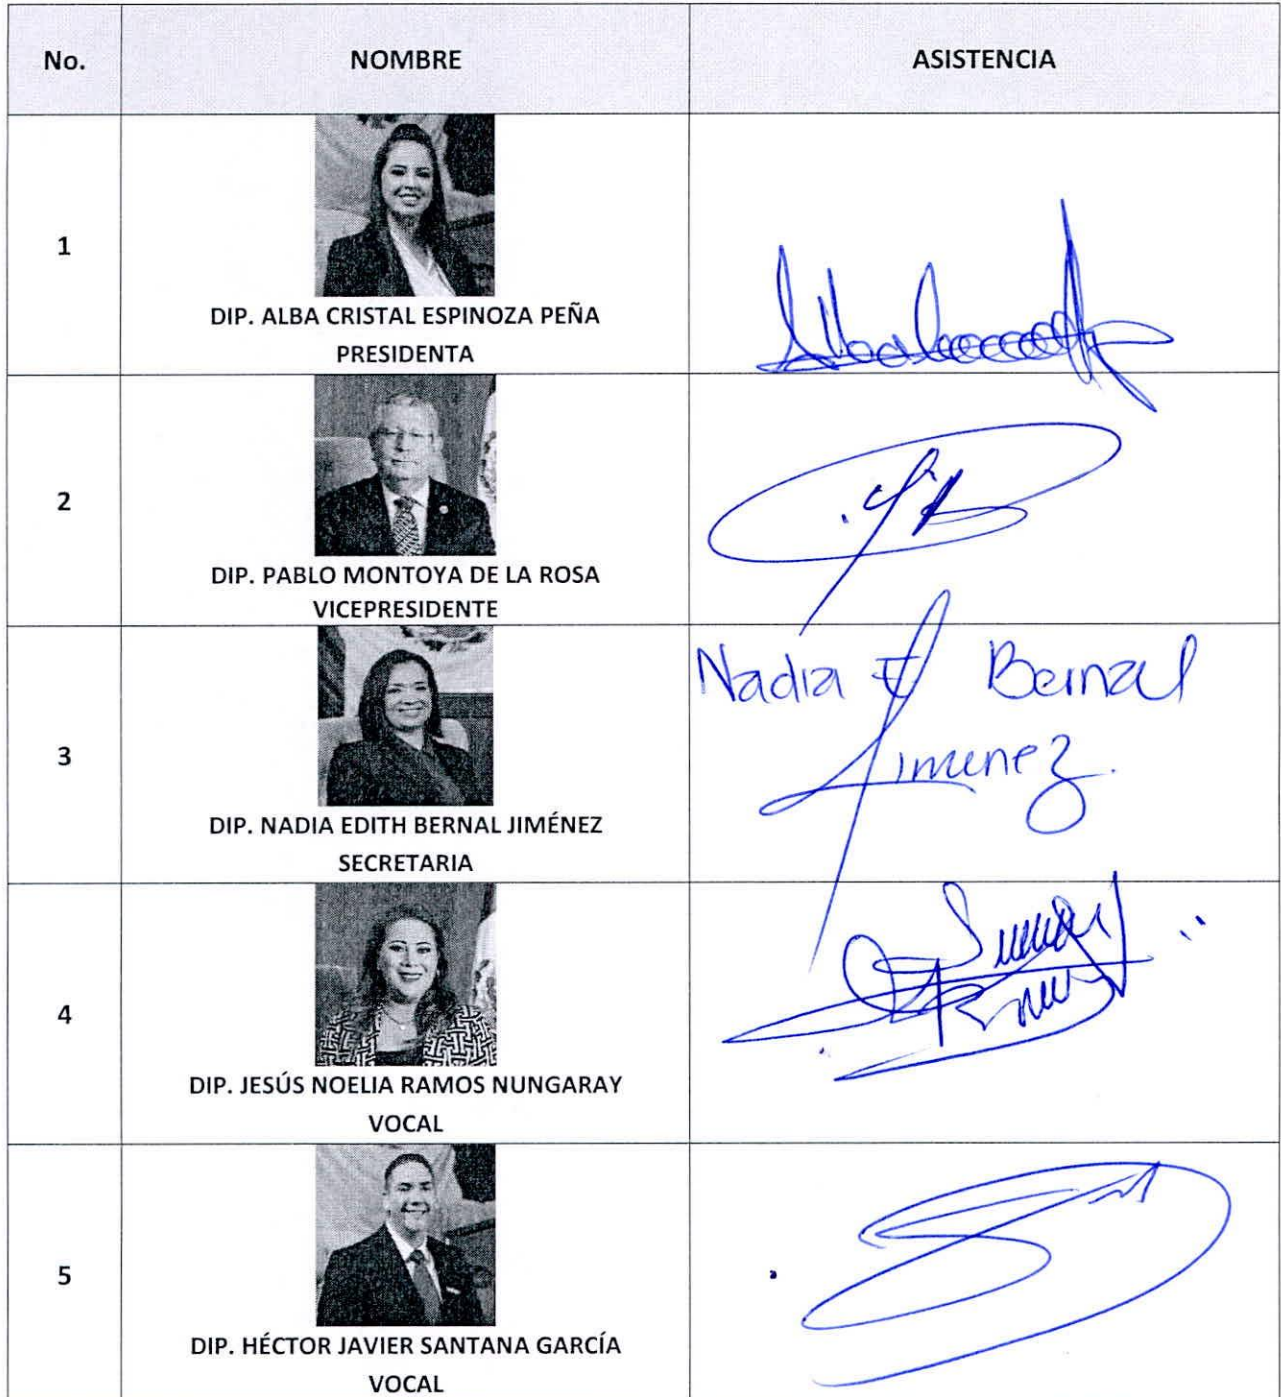 No. NOMBRE ASISTENCIA
1
DIP. ALBA CRISTAL ESPINOZA PEÑA
PRESIDENTA
2
DIP. PABLO MONTOYA DE LA ROSA
VICEPRESIDENTE
3
Nadia E Bernal
Jimenez
DIP. NADIA EDITH BERNAL JIMÉNEZ
SECRETARIA
4
DIP. JESÚS NOELIA RAMOS NUNGARAY
VOCAL
5
DIP. HÉCTOR JAVIER SANTANA GARCÍA
VOCAL